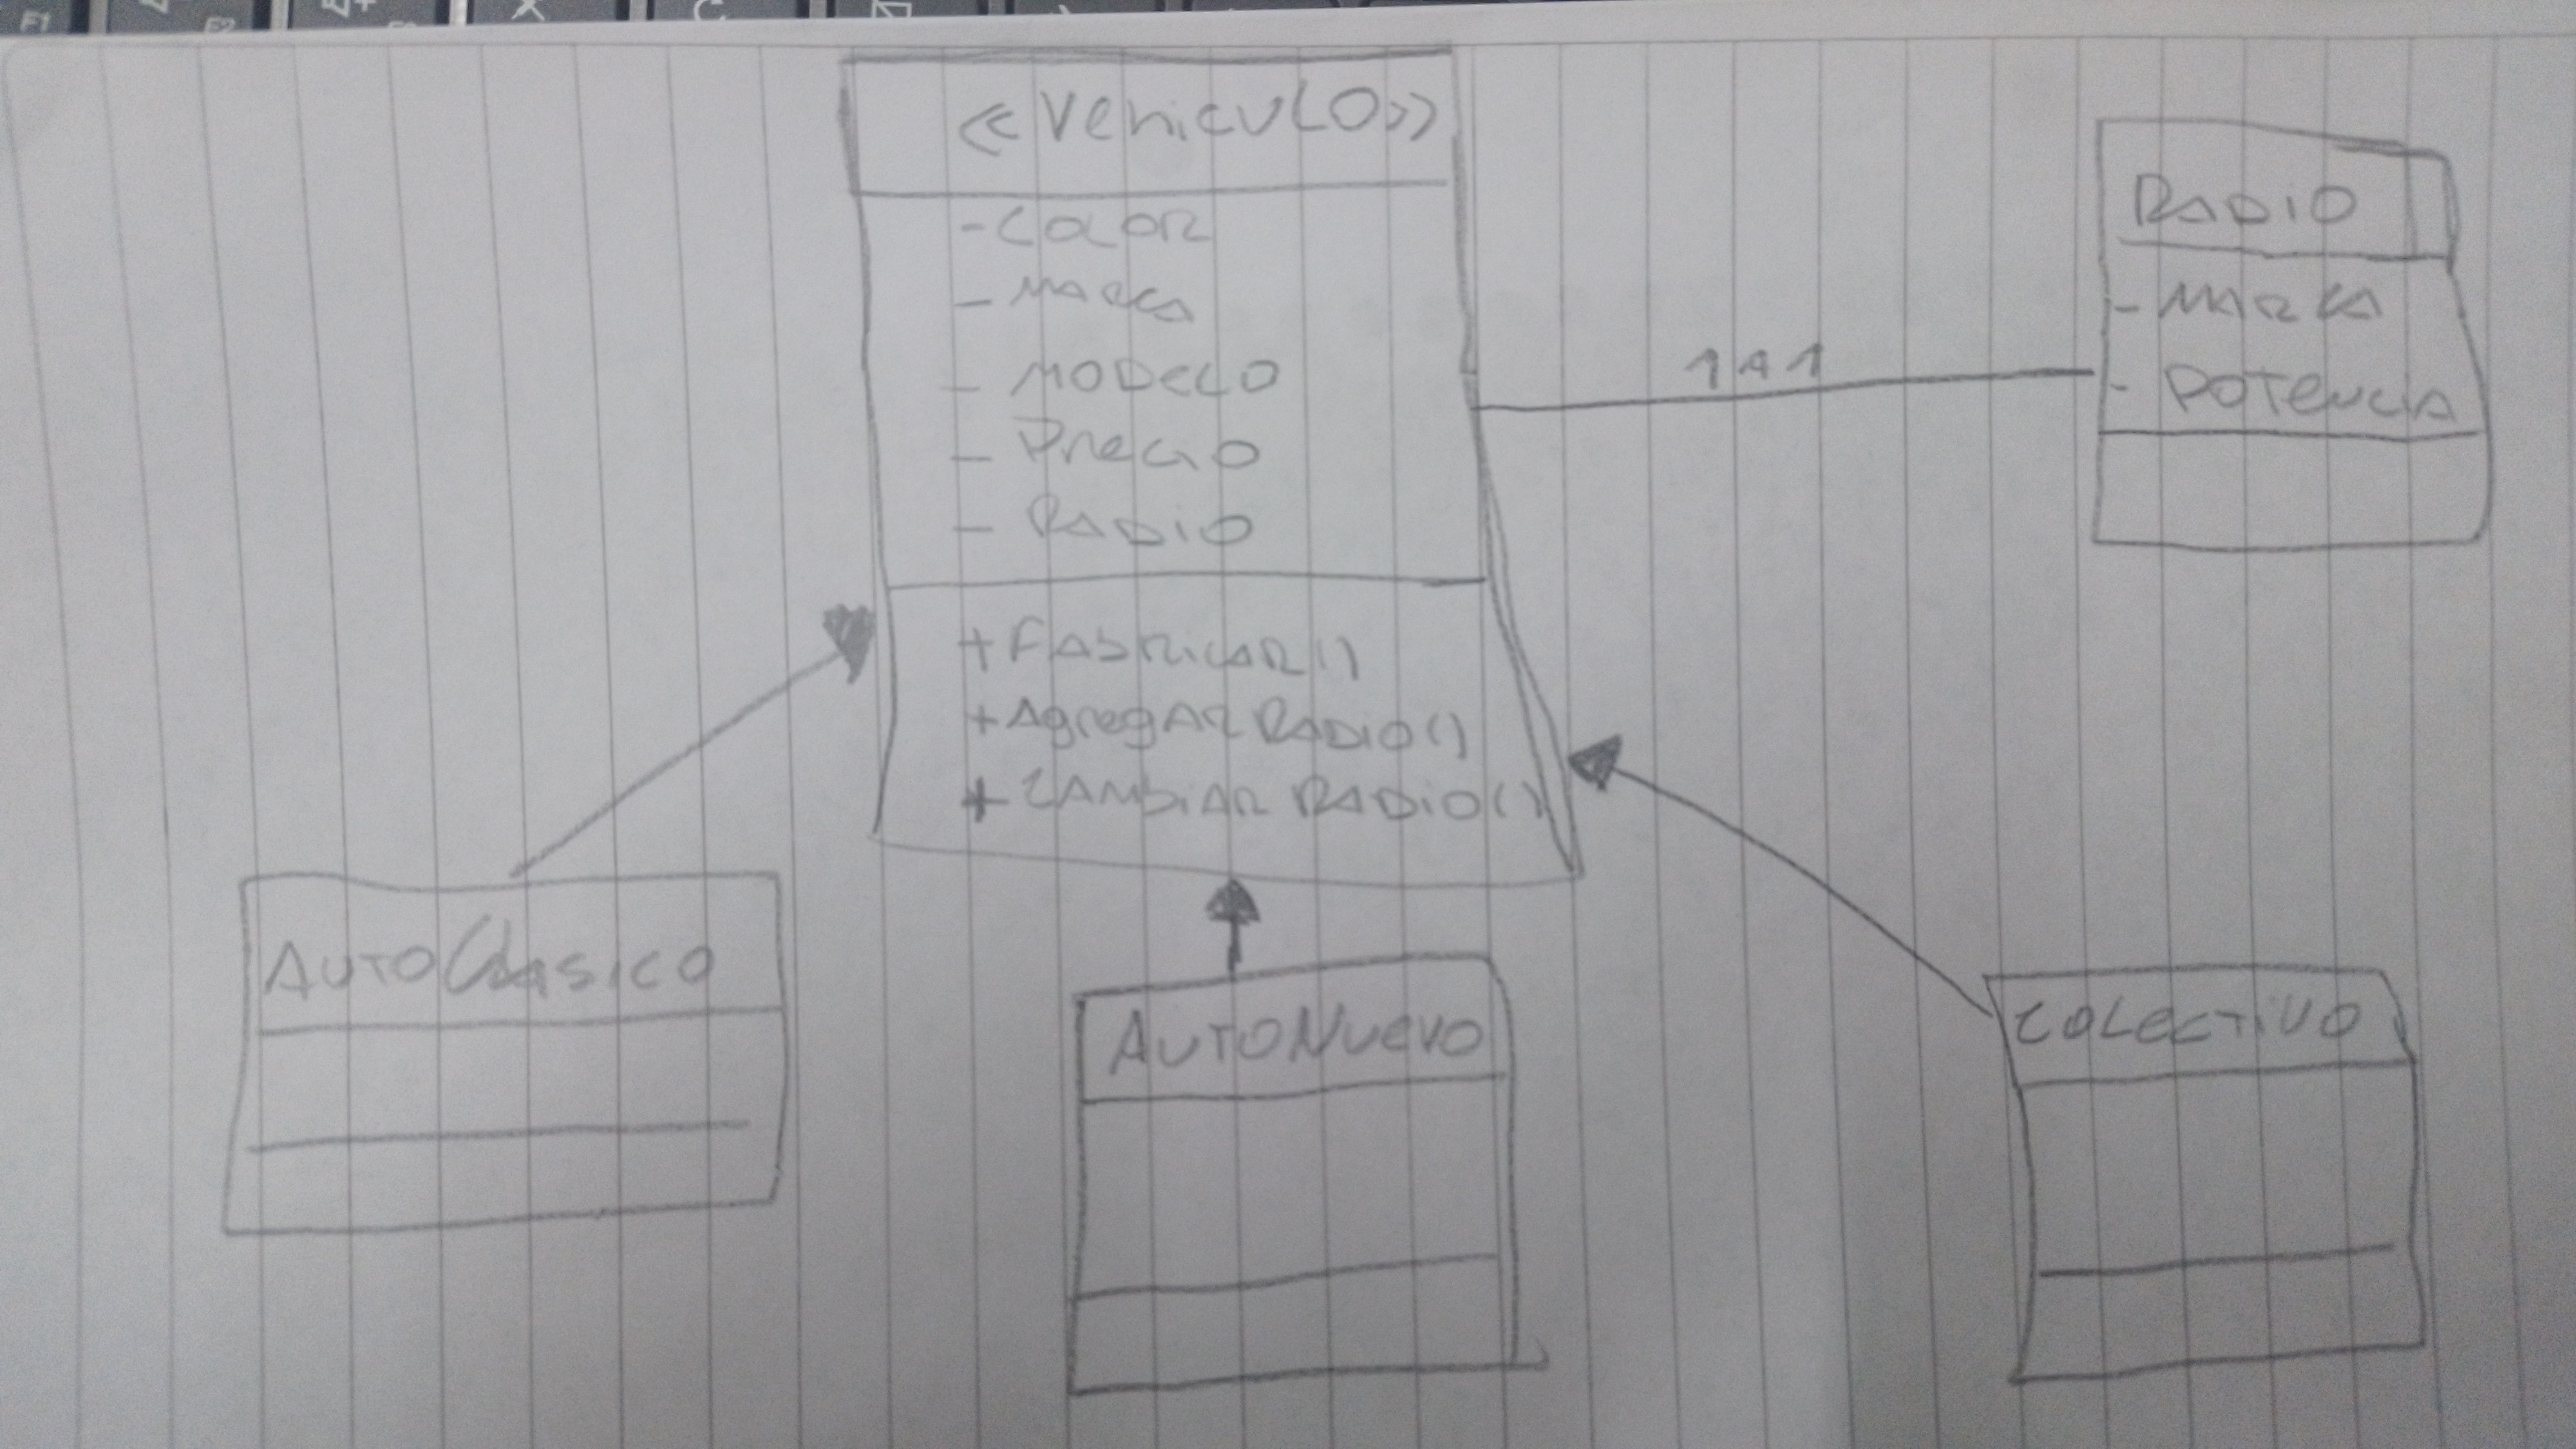 F1
F2
<<Vehiculo>>
- Color
- Marca
- Modelo
- Precio
- Radio
+ Fabricar()
+ Agregar Radio()
+ Cambiar Radio()
Radio
- Marca
- Potencia
1 a 1
AutoClasico
AutoNuevo
Colectivo